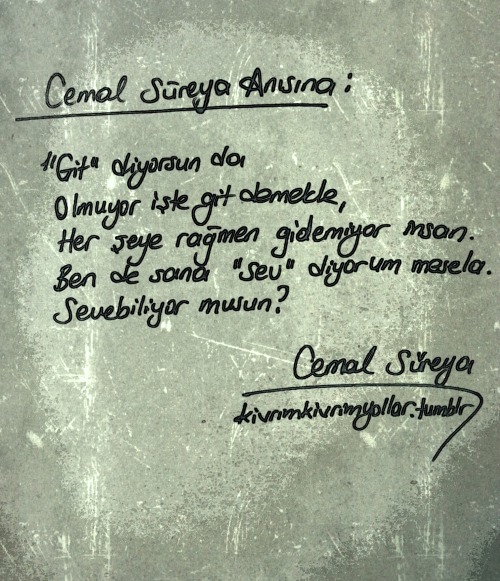 Cemal Süreya Anısına:
"Git" diyorsun da
Olmuyor işte git demekle,
Her şeye rağmen gidemiyor insan.
Ben de sana "sev" diyorum mesela.
Sevebiliyor musun?
Cemal Süreya
kivrimkivrimyollar.tumblr